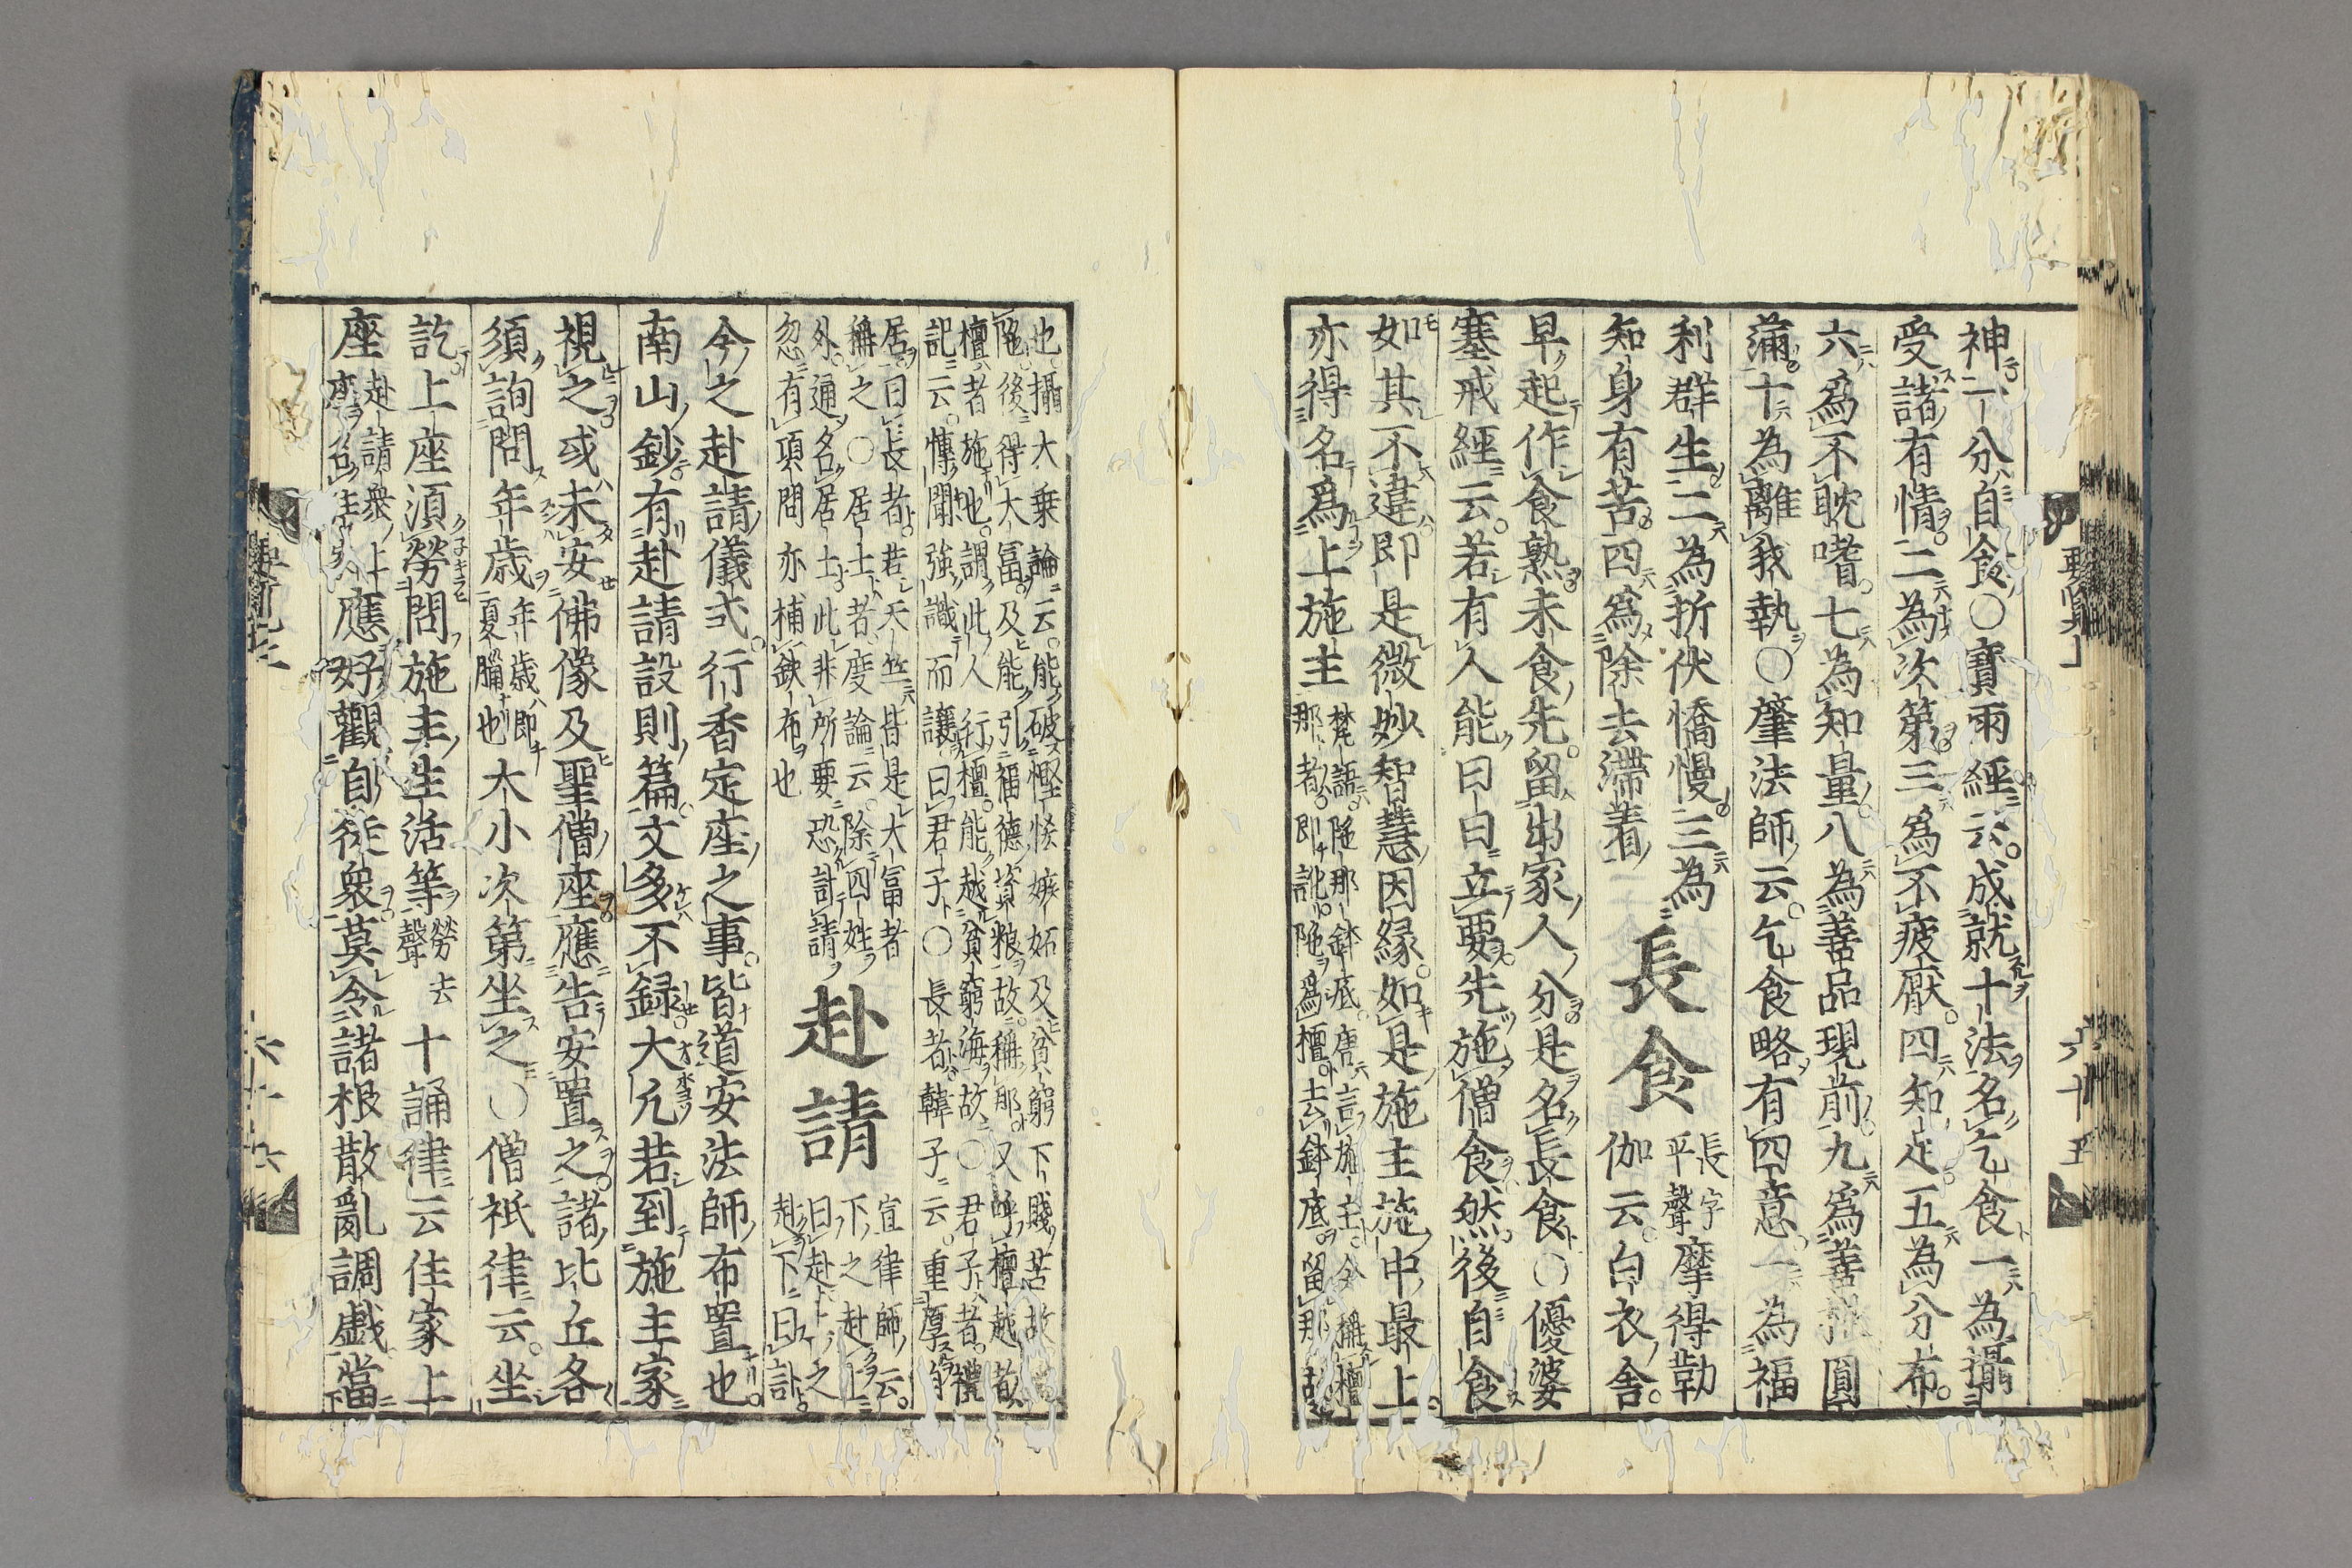 神二分自食〇寶雨經云成就十法名乞食一為攝
受諸有情二為次第三為不疲厭四知足五為分布
六為不耽嗜七為知量八為善品現前九為善根圓
滿十為離我執〇肇法師云乞食略有四意一為福
利群生二為折伏憍慢三為
知身有苦四為除去滯着
長食
長字
平聲
摩得勒
伽云白衣舎
早起作食熟未食先留出家人分是名長食〇優婆
塞戒經云若有人能日日立要先施僧食然後自食
如其不違即是微妙智慧因緣如是施主施中最上
亦得名為上施主
梵語陁那鉢底唐言施主今稱檀
那者即訛陁為檀去鉢底留那故
也攝大乗論云能破慳悋嫉妬及貧窮下賤苦故
陁後得大冨及能引福德資粮故稱那又呼檀越者
檀者施也謂此人行檀能越貧窮海故〇君子者禮
記云慱聞強識而讓曰君子〇長者韓子云重厚自
居曰長者若天竺皆是大冨者
稱之〇居士者度論云除四姓
外通名居士此非所要恐計請
忽有項問亦補欽布也
赴請
宣律師云
下之赴上
曰赴上之
赴下曰訃
今之赴請儀式行香定座之事皆道安法師布置也
南山鈔有赴請設則篇文多不録大凡若到施主家
視之或未安佛像及聖僧座應告安置之諸比丘各
須詢問年歳
年歳即
夏臘也
大小次第坐之〇僧祇律云坐
訖上座須勞問施主生活等
勞去
聲
十誦律云住家上
座
赴請衆上
應好觀自徒衆莫令諸根散亂調戲當
六十五